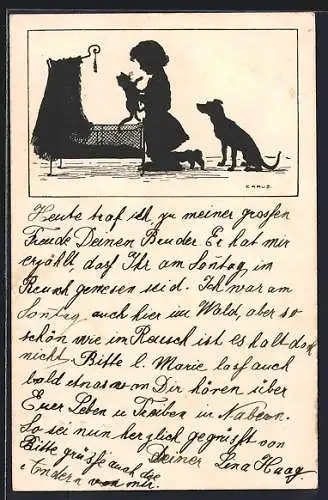 CARUS.
Heute traf ich zu meiner grossen
Freude Deinen Bruder. Er hat mir
erzählt, daß Ihr am Sontag im
Reusch gewesen seid. Ich war am
Sontag auch hier im Wald, aber so
schön wie im Reusch ist es halt doch
nicht. Bitte l. Marie lass auch
bald etwas von Dir hören über
Euer Leben u Treiben in Nabern.
So sei nun herzlich gegrüsst von
Deiner Lina Haag.
Bitte grüße auch die
Andern von mir.